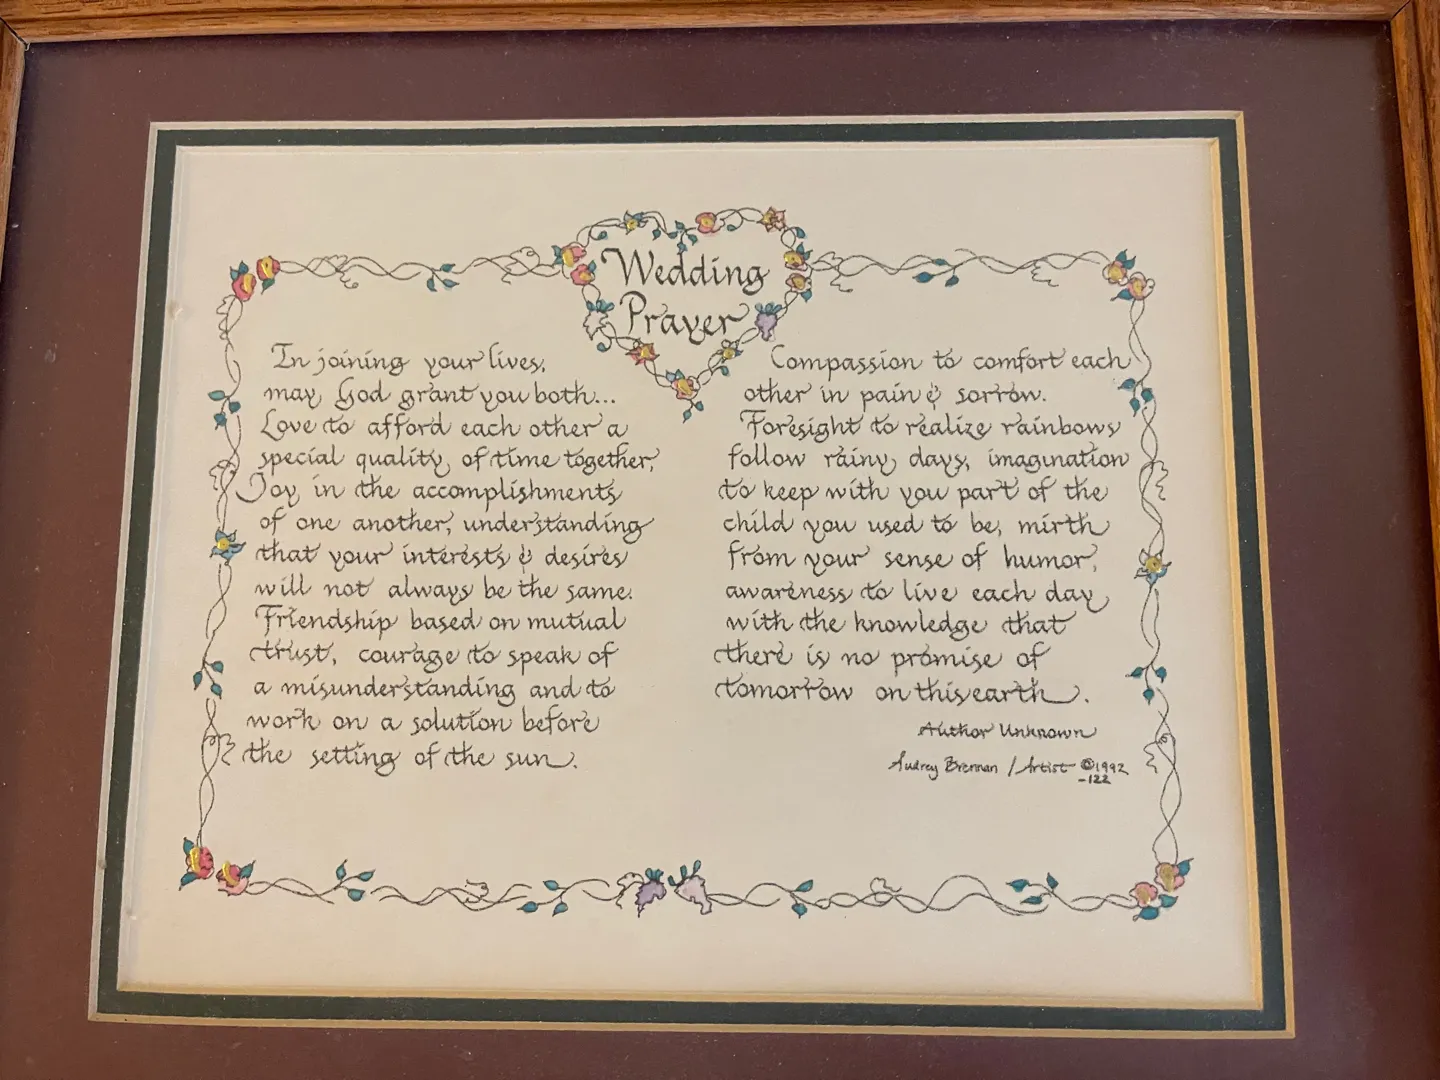 Wedding
Prayer
In joining your lives,
may God grant you both...
Love to afford each other a
special quality of time together,
Joy in the accomplishments
of one another, understanding
that your interests & desires
will not always be the same.
Friendship based on mutual
trust, courage to speak of
a misunderstanding and to
work on a solution before
the setting of the sun.
Compassion to comfort each
other in pain & sorrow.
Foresight to realize rainbows
follow rainy days, imagination
to keep with you part of the
child you used to be, mirth
from your sense of humor,
awareness to live each day
with the knowledge that
there is no promise of
tomorrow on this earth.
Author Unknown
Audrey Brennan / Artist ©1992
-122